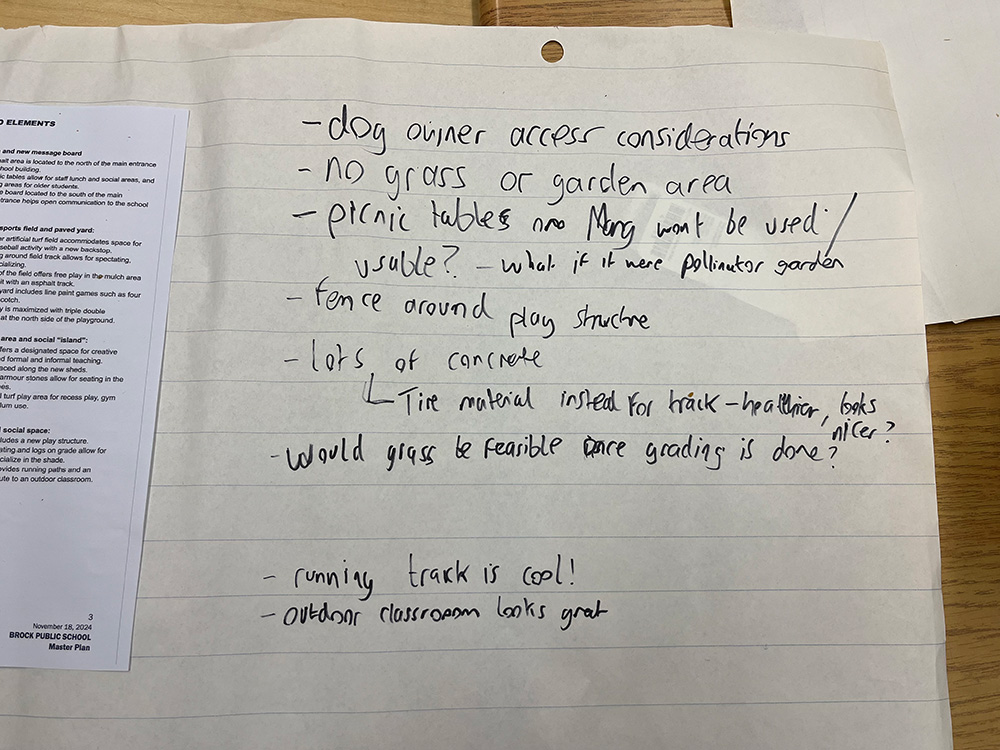 D ELEMENTS
and new message board
alt area is located to the north of the main entrance
hool building.
ic tables allow for staff lunch and social areas, and
g areas for older students.
e board located to the south of the main
trance helps open communication to the school
sports field and paved yard:
r artificial turf field accommodates space for
seball activity with a new backstop.
g around field track allows for spectating,
cializing.
of the field offers free play in the mulch area
it with an asphalt track.
yard includes line paint games such as four
cotch.
y is maximized with triple double
at the north side of the playground.
area and social "island":
fers a designated space for creative
d formal and informal teaching.
aced along the new sheds.
armour stones allow for seating in the
es.
l turf play area for recess play, gym
lum use.
social space:
ludes a new play structure.
ating and logs on grade allow for
cialize in the shade.
vides running paths and an
ute to an outdoor classroom.
3
November 18, 2024
BROCK PUBLIC SCHOOL
Master Plan
- dog owner access considerations
- no grass or garden area
- picnic tables wont be used /
usable? - what if it were pollinator garden
- fence around play structure
- lots of concrete
Tire material instead for track - healthier, looks
nicer?
- Would grass be feasible once grading is done?
- running track is cool!
- outdoor classroom looks great